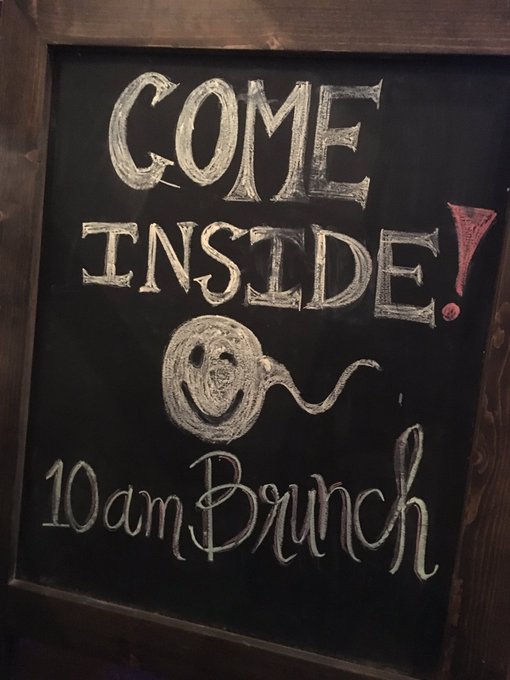 COME
INSIDE!
10am Brunch